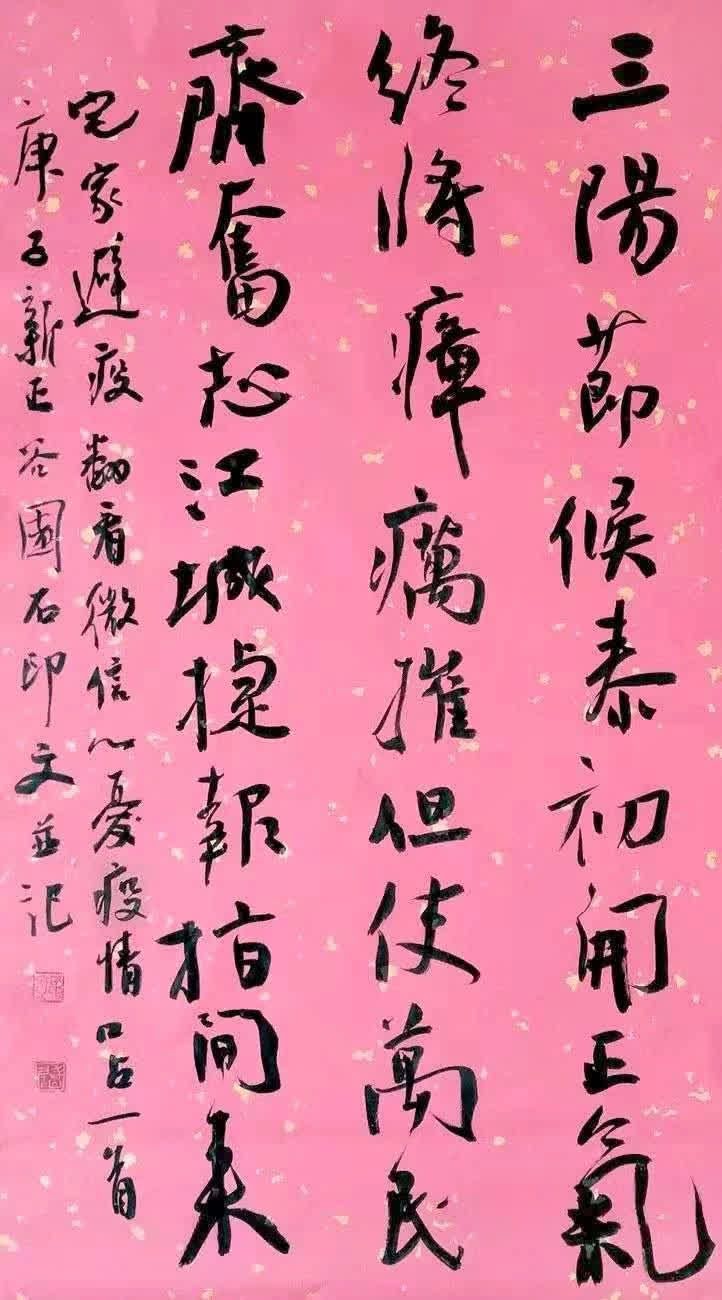 三陽節候泰初開正氣
終將瘴癘摧但使萬民
齊奮志江城捷報指間來
宅家避疫翻看微信心憂疫情口占一首
庚子新正谷園石印文並記